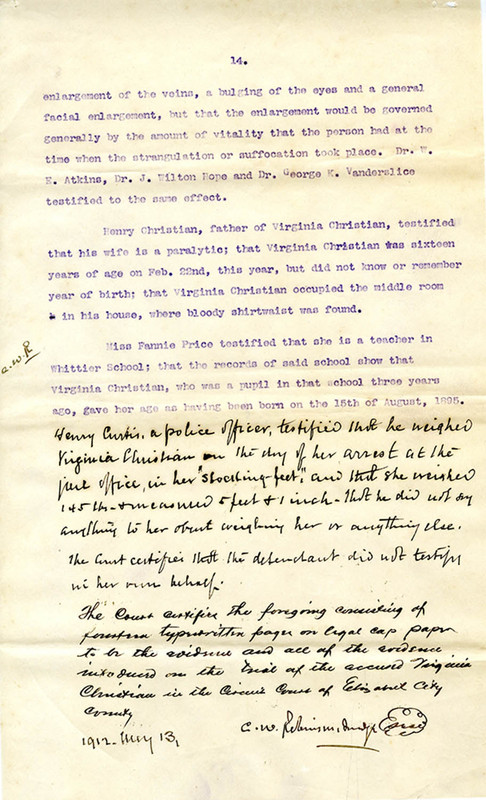 14.
enlargement of the veins, a bulging of the eyes and a general
facial enlargement, but that the enlargement would be governed
generally by the amount of vitality that the person had at the
time when the strangulation or suffocation took place. Dr. W.
E. Atkins, Dr. J. Wilton Hope and Dr. George K. Vanderslice
testified to the same effect.
Henry Christian, father of Virginia Christian, testified
that his wife is a paralytic; that Virginia Christian was sixteen
years of age on Feb. 22nd, this year, but did not know or remember
year of birth; that Virginia Christian occupied the middle room
in his house, where bloody shirtwaist was found.
C.W.R
Miss Fannie Price testified that she is a teacher in
Whittier School; that the records of said school show that
Virginia Christian, who was a pupil in that school three years
ago, gave her age as having been born on the 15th of August, 1895.
Henry Curtis, a police officer, testified that he weighed
Virginia Christian on the day of her arrest at the
office, in her "stocking-feet," and that she weighed
145 lbs. & measured 5 feet & 1 inch - that he did not say
anything to her about weighing her or anything else.
The Court certifies that the defendant did not testify
in her own behalf.
The Court certifies the foregoing consisting of
fourteen typewritten pages on legal cap paper
to be the evidence and all of the evidence
introduced on the trial of the accused Virginia
Christian in the Circuit Court of Elizabeth City
County
C. W. Robinson, Judge
1912. May 13,